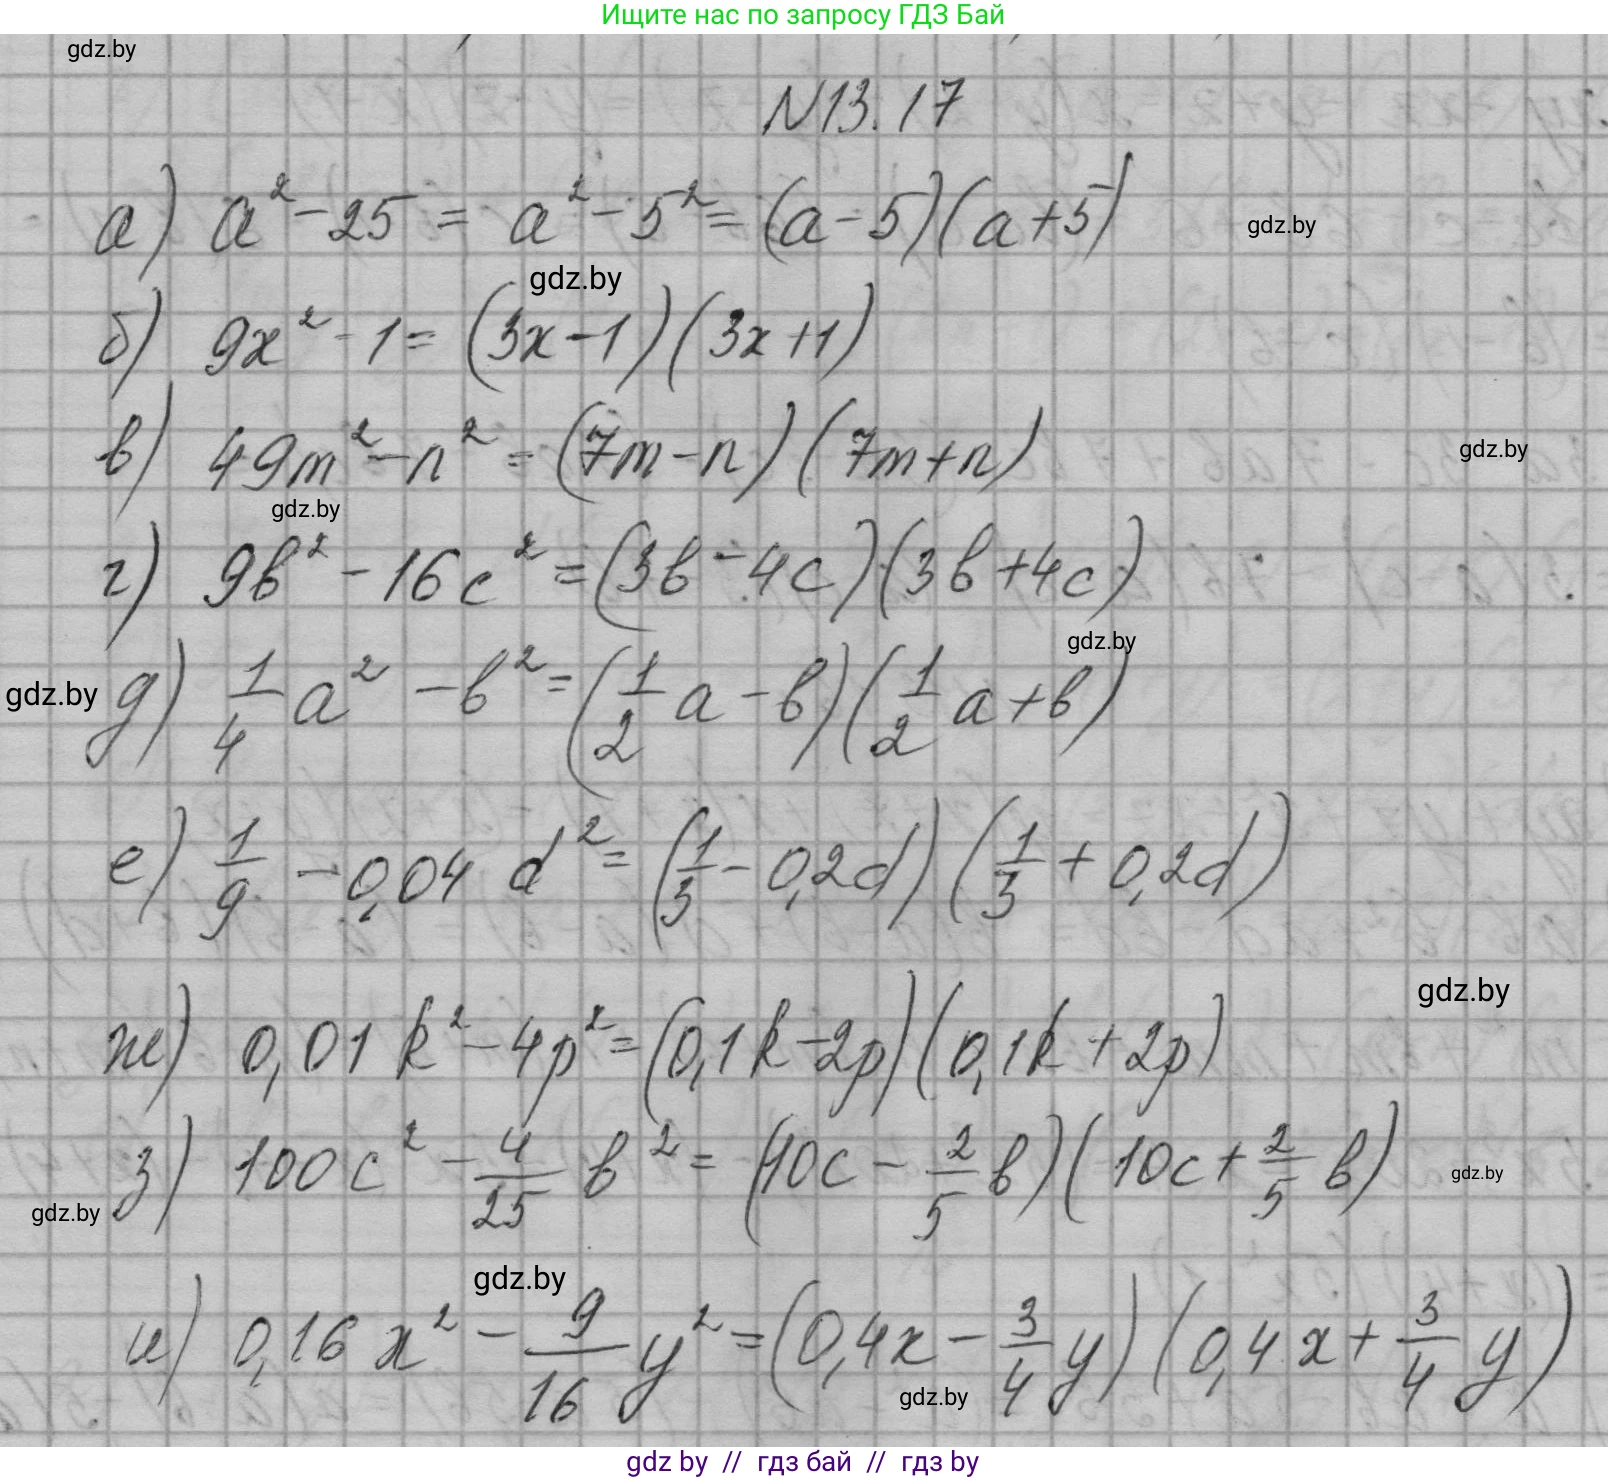 Ищите нас по запросу ГДЗ Бай
gdz.by
N13.17
а) a² - 25 = a² - 5² = (a - 5)(a + 5)
gdz.by
gdz.by
б) 9x² - 1 = (3x - 1)(3x + 1)
в) 49m² - n² = (7m - n)(7m + n)
gdz.by
gdz.by
г) 9b² - 16c² = (3b - 4c)(3b + 4c)
gdz.by
gdz.by
д) 1/4 a² - b² = (1/2 a - b)(1/2 a + b)
е) 1/9 - 0,04 d² = (1/3 - 0,2d)(1/3 + 0,2d)
gdz.by
ж) 0,01 k² - 4p² = (0,1k - 2p)(0,1k + 2p)
з) 100c² - 4/25 b² = (10c - 2/5 b)(10c + 2/5 b)
gdz.by
gdz.by
gdz.by
и) 0,16 x² - 9/16 y² = (0,4x - 3/4 y)(0,4x + 3/4 y)
gdz.by
gdz by // гдз бай // гдз by